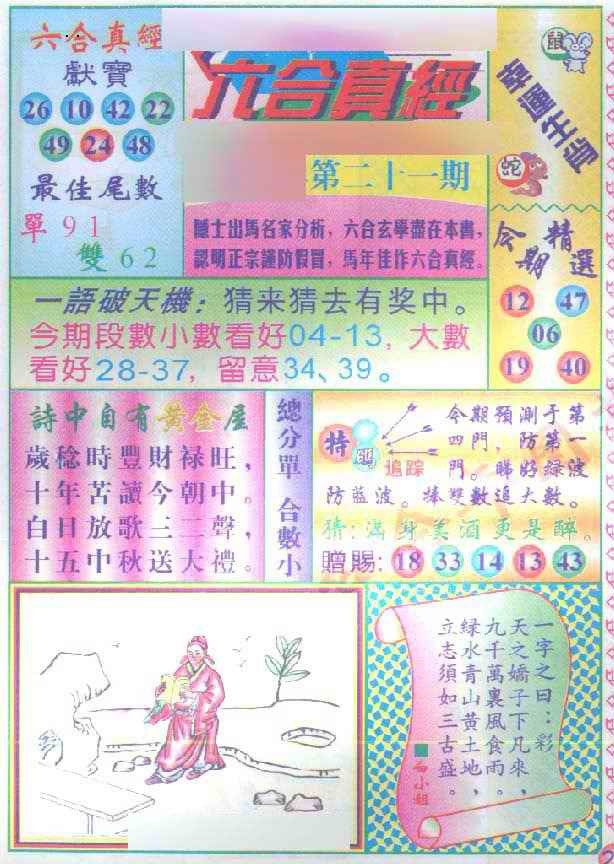 六合真經
獻寶
26 10 42 22
49 24 48
最佳尾數
單 9 1
雙 6 2
六合真經
第二十一期
隱士出馬名家分析，六合玄學盡在本書，
認明正宗謹防假冒，馬年佳作六合真經。
鼠
幸運生肖
蛇
今期精選
12 47
06
19 40
一語破天機：猜来猜去有奖中。
今期段數小數看好04-13，大數
看好28-37，留意34、39。
詩中自有黃金屋
歲稔時豐財禄旺，
十年苦讀今朝中。
白日放歌三二聲，
十五中秋送大禮。
總分單 合數小
特
追踪
今期預測于第
四門，防第一
門。睇好綠波
防蓝波。捧雙數追大數。
猜：滿身美酒更是醉。
贈賜：18 33 14 13 43
一字之曰：彩
天之嬌子下凡來，
九千萬裏風食雨，
緑水青山黃土地，
立志須如三古盛。
小姐